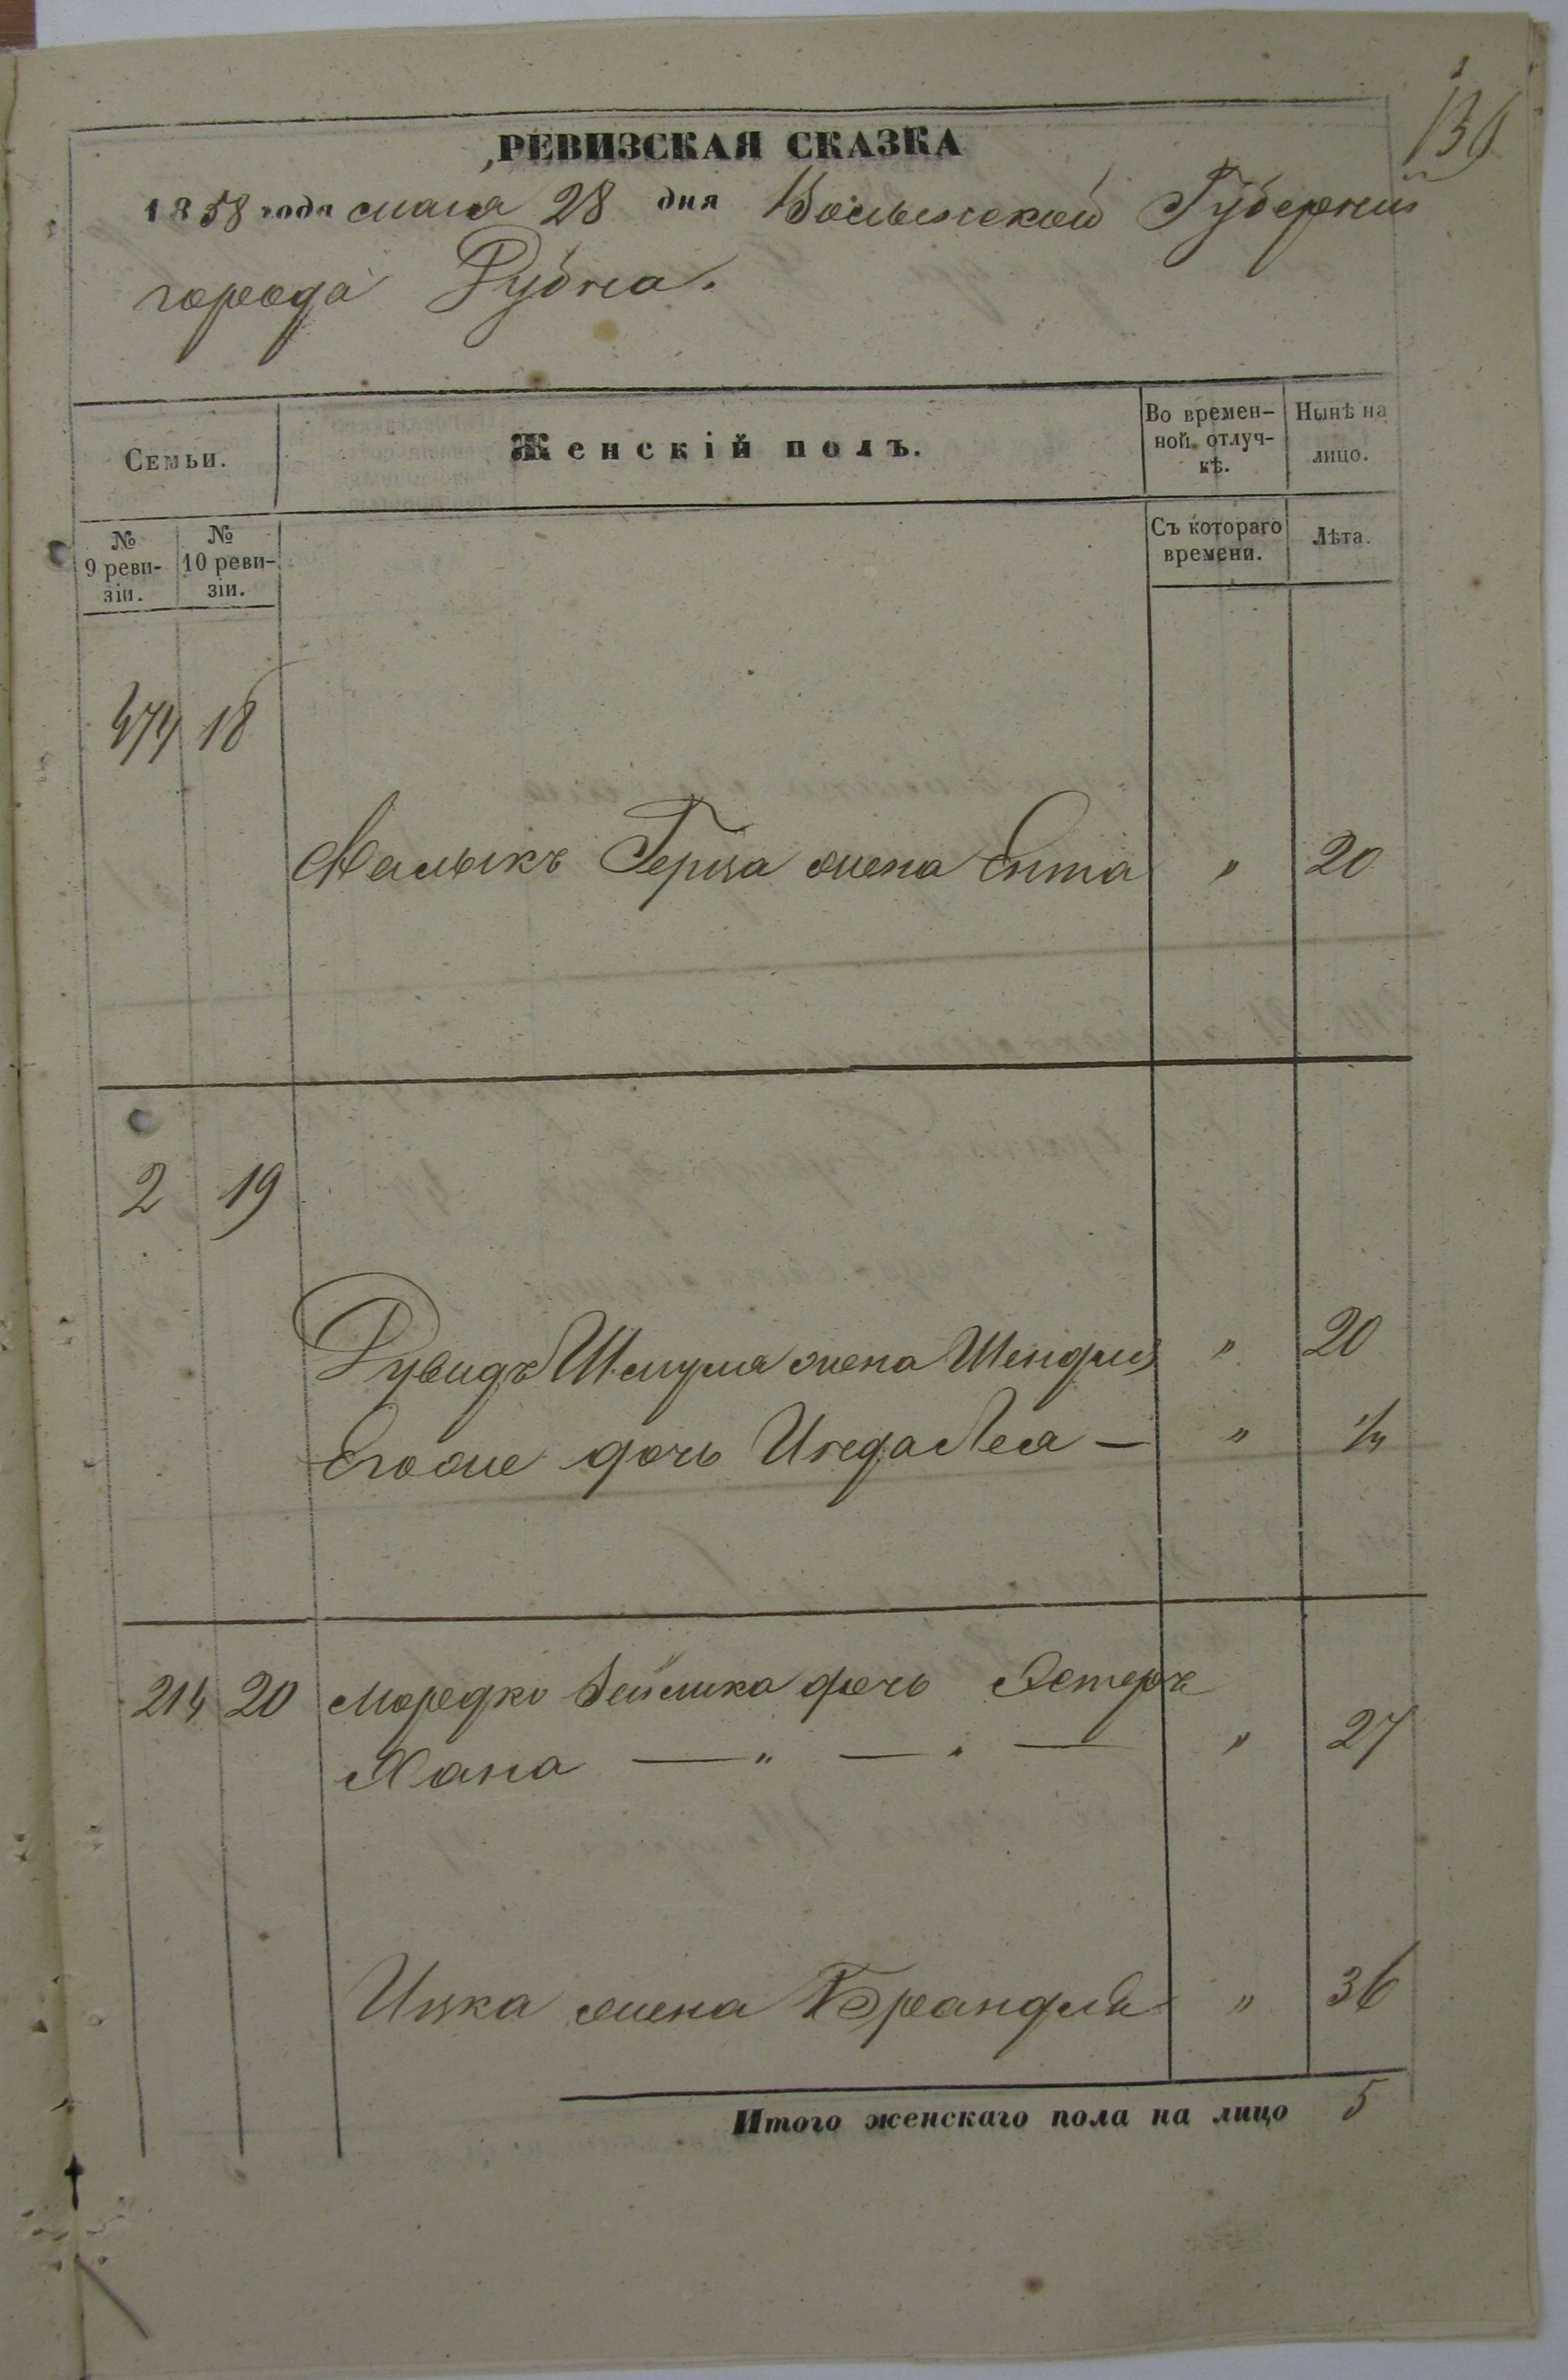 139
РЕВИЗСКАЯ СКАЗКА
1858 года мая 28 дня Волынской Губернии
города Дубна.
Семьи.
Женскій полъ.
Во времен-
ной отлуч-
кѣ.
Нынѣ на
лицо.
№
9 реви-
зіи.
№
10 реви-
зіи.
Съ котораго
времени.
Лѣта.
474 18
Малыкъ Герша жена Ента " 20
2 19
Рувидъ Шмуля жена Шендля " 20
Егоже дочь Инда Леа — "
214 20 Мордко Зейлика дочь Эстеръ
Хана — " — " — " 27
Ицка жена Брандля " 36
Итого женскаго пола на лицо 5